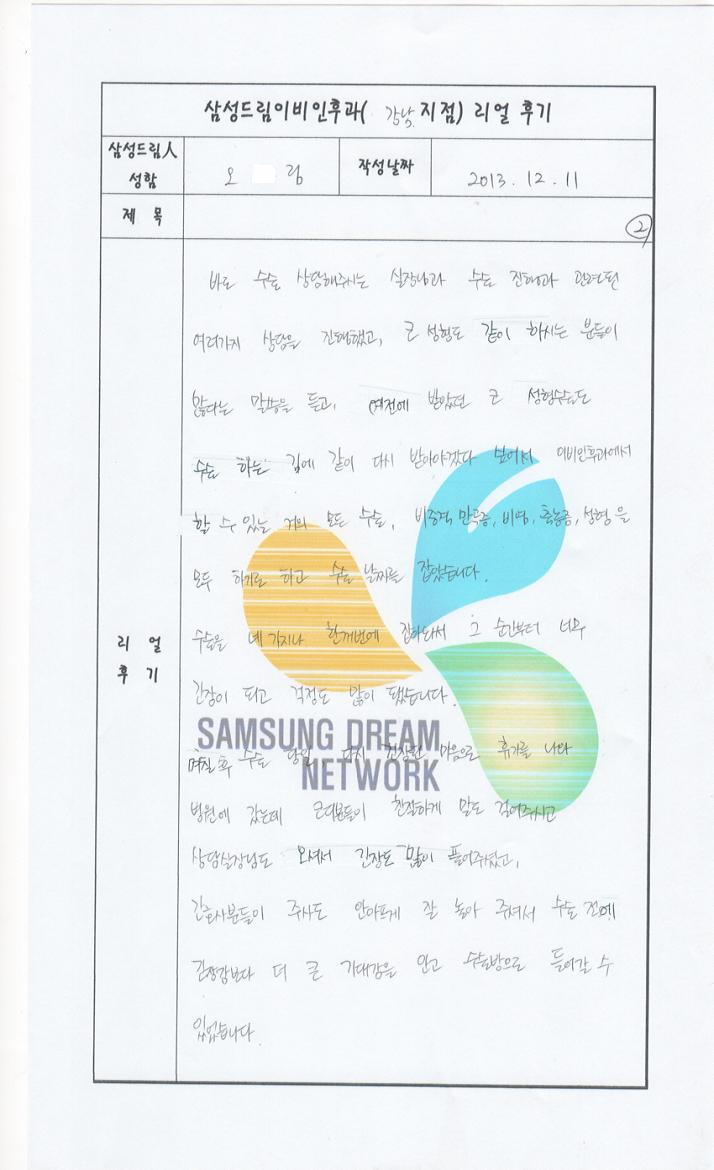 삼성드림이비인후과( 강남 지점) 리얼 후기
삼성드림人 성함
오 림
작성날짜
2013. 12. 11
제 목
2
리 얼 후 기
바로 수술 상담해주시는 실장님과 수술 진행과 관련된
여러가지 상담을 진행했고, 코 성형도 같이 하시는 분들이
많다는 말씀을 듣고, 예전에 받았던 코 성형수술도
수술 하는 김에 같이 다시 받아야겠다 싶어서 이비인후과에서
할 수 있는 거의 모든 수술, 비중격 만곡증, 비염, 축농증, 성형 을
모두 하기로 하고 수술 날짜를 잡았습니다.
수술을 네 가지나 한꺼번에 잡아놔서 그 순간부터 너무
긴장이 되고 걱정도 많이 됐습니다.
SAMSUNG DREAM NETWORK
며칠 후 수술 당일, 다시 긴장된 마음으로 휴가를 나와
병원에 갔는데 간호사분들이 친절하게 말도 걸어주시고
상담실장님도 오셔서 긴장도 많이 풀어주셨고,
간호사분들이 주사도 안아프게 잘 놓아 주셔서 수술 전에
긴장감보다 더 큰 기대감을 안고 수술방으로 들어갈 수
있었습니다.